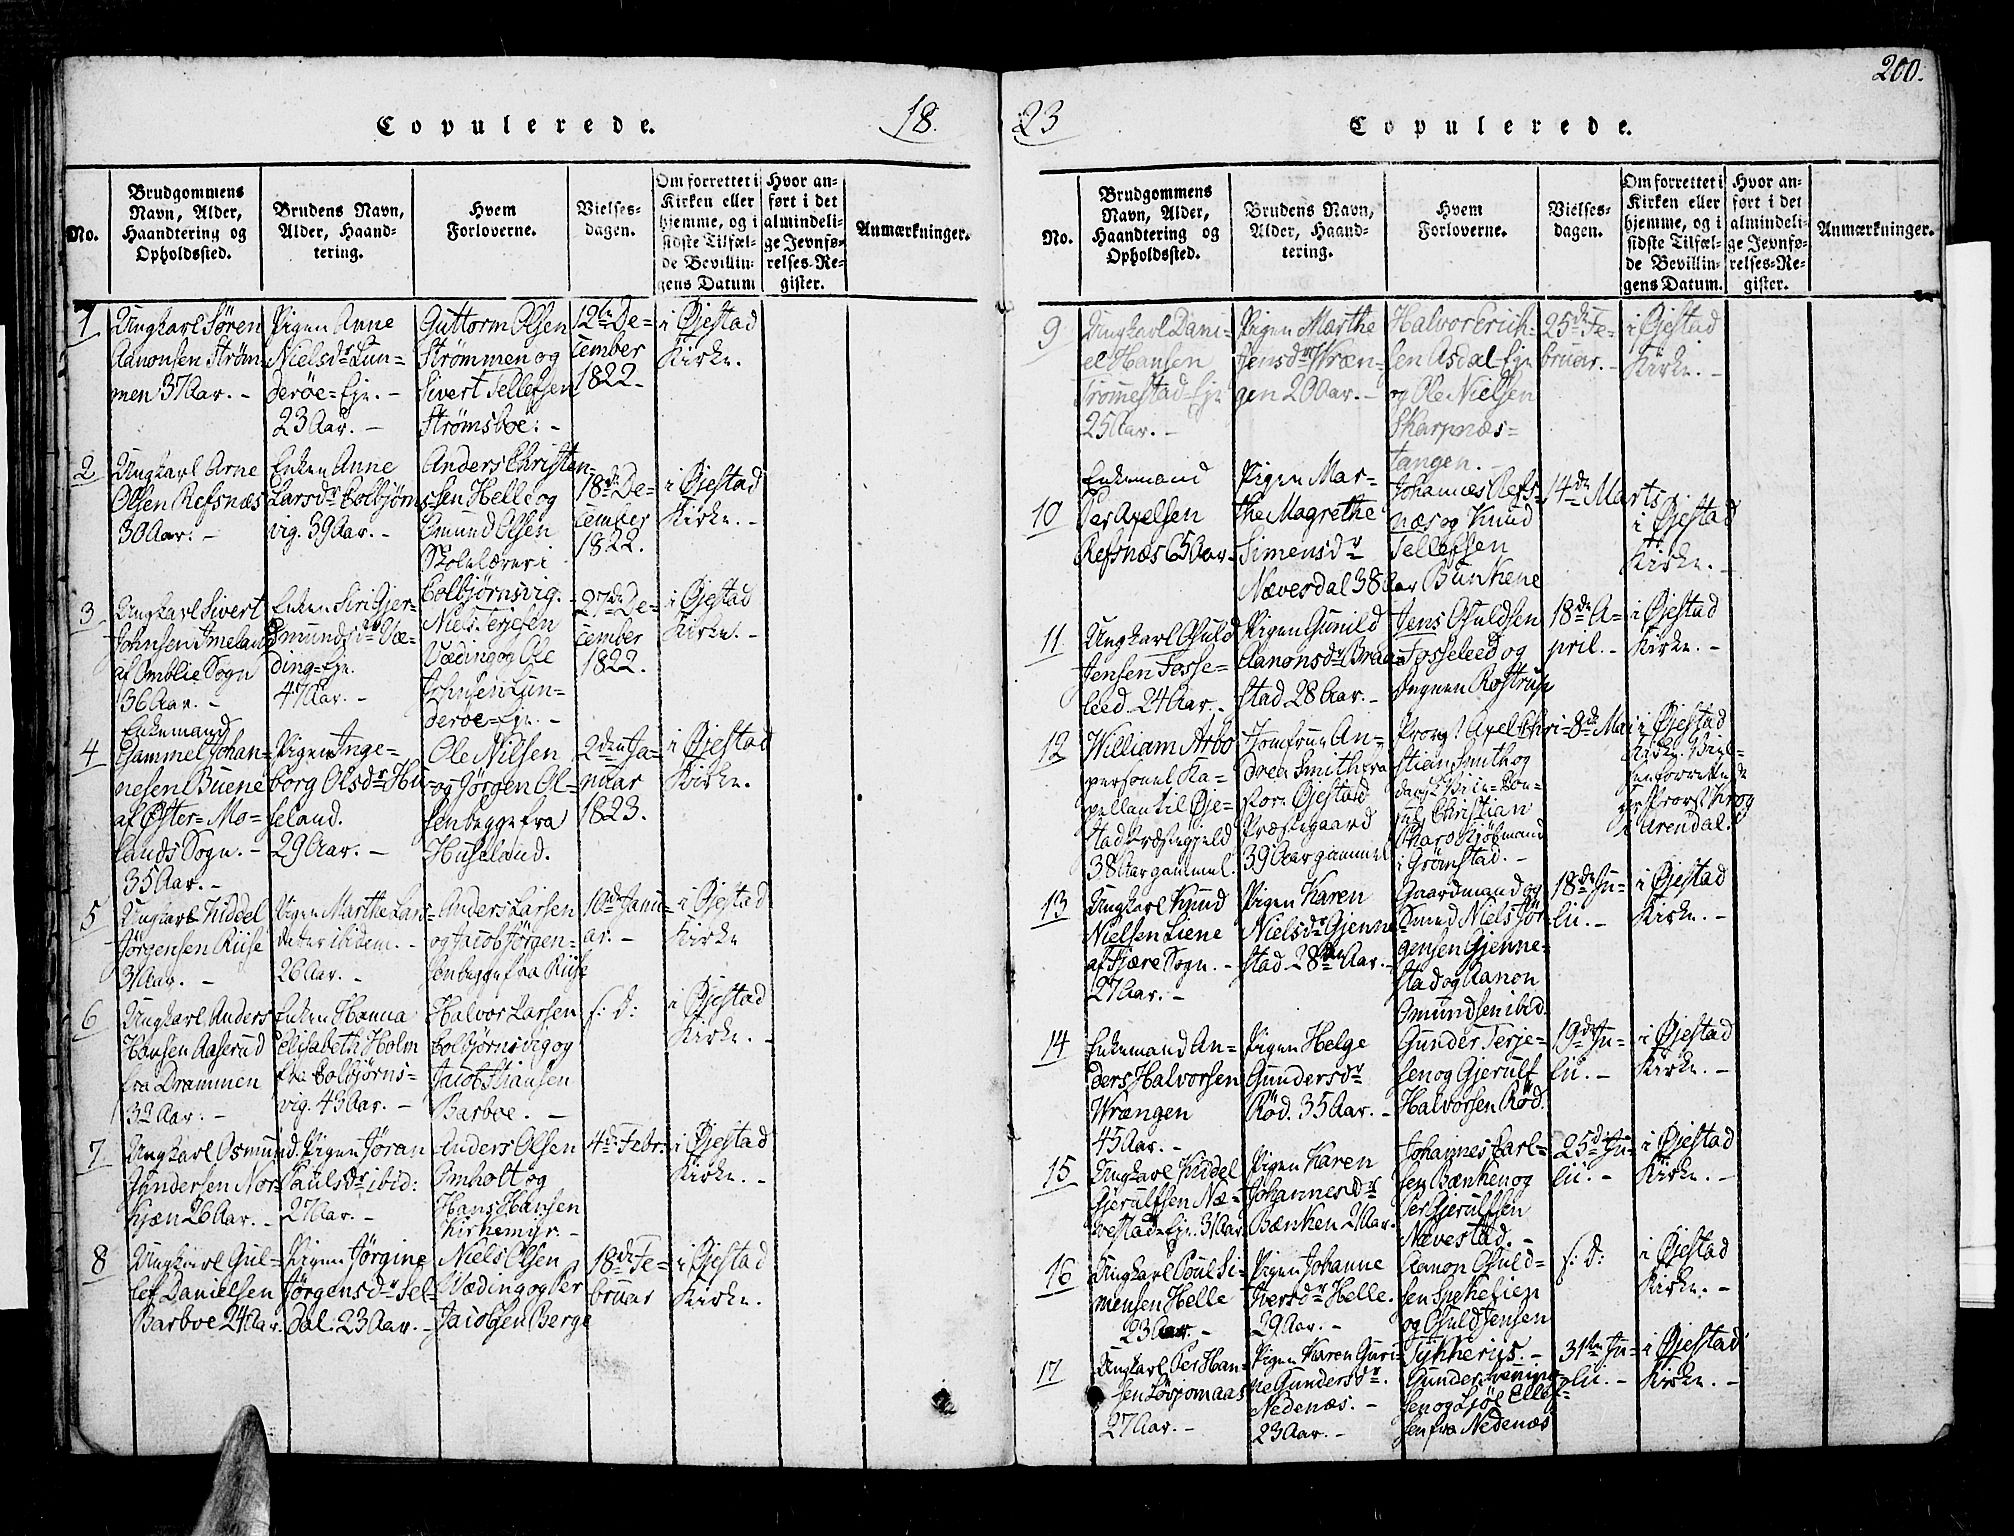 200.
Copulerede.
18.
23
Copulerede.
No.
Brudgommens
Navn, Alder,
Haandtering og
Opholdssted.
Brudens Navn,
Alder, Haand-
tering.
Hvem
Forloverne.
Vielses-
dagen.
Om forrettet i
Kirken eller
hjemme, og i
sidste Tilfæl-
de Bevillin-
gens Datum
Hvor an-
ført i det
almindeli-
ge Jevnfø-
relses-Re-
gister.
Anmærkninger.
1
Ungkarl Søren
Aanonsen Strøm-
men 37 Aar. -
Pigen Anne
Nielsdr Lun-
derøe-Eje. -
23 Aar. -
Guttorm Olsen
Strømmen og
Sivert Tellefsen
Strømsboe: -
12te De-
cember
1822.
i Øjestad
Kirke.
2
Ungkarl Arne
Olsen Refsnæs
30 Aar: -
Enken Anne
Larsdr Colbjørns-
vig. 39 Aar. -
Anders Christen-
sen Helle og
Omund Olsen
Skolelærer i
Colbjørnsvig. -
18de De-
cember
1822.
i Øjestad
Kirke. -
3
Ungkarl Sivert
Johnsen Imeland
af Omblie Sogn
36 Aar. -
Enken Siri Gjer-
smundsdr Væ-
ding-Eje.
47 Aar. -
Niels Terjesen
Væding og Ole
Johnsen Lun-
derøe-Eje. -
27de De-
cember
1822.
i Øjestad
Kirke. -
4
Enkemand
Gammel Johan-
nesen Buene
af Øster-Mo-
lands Sogn. -
35 Aar. -
Pigen Inge-
borg Olsdr Hu-
seland.
29 Aar. -
Ole Nilsen
og Jørgen Ol-
sen begge fra
Huseland.
2den Ja-
nuar
1823.
i Øjestad
Kirke.
5
Ungkarl Kiddel
Jørgensen Riise
31 Aar. -
Pigen Marthe Lars-
datter ibidem. -
26 Aar. -
Anders Larsen
og Jacob Jørgen-
sen begge fra Riise
10de Janu-
ar. -
i Øjestad
Kirke
6
Ungkarl Anders
Hansen Aaserud
fra Drammen
32 Aar: -
Enken Hanna
Elisabeth Holm
fra Colbjørns-
vig. 43 Aar. -
Halvor Larsen
Colbjørnsvig og
Jacob Hansen
Barboe. -
s: d:
i Øjestad
Kirke. -
7
Ungkarl Osmund
Gundersen Nor-
kjæn 26 Aar. -
Pigen Jøran
Paulsdr ibid:
27 Aar. -
Anders Olsen
Omholt og
Hans Hansen
Kirkemyr. -
4de Febr:
i Øjestad
Kirke. -
8
Ungkarl Gul-
lef Danielsen
Barboe 24 Aar.
Pigen Jørgine
Jørgensdr Sel-
dal. 23 Aar. -
Niels Olsen
Væding og Per
Jacobsen Berge
18de Fe-
bruar
i Øjestad
Kirke.
No.
Brudgommens
Navn, Alder,
Haandtering og
Opholdssted.
Brudens Navn,
Alder, Haand-
tering.
Hvem
Forloverne.
Vielses-
dagen.
Om forrettet i
Kirken eller
hjemme, og i
sidste Tilfæl-
de Bevillin-
gens Datum.
Hvor an-
ført i det
almindeli-
ge Jevnfø-
relses-Re-
gister.
Anmærkninger.
9
Ungkarl Dani-
el Hansen
Tromestad-Eje
25 Aar. -
Pigen Marthe
Jensdr Vræn-
gen 20 Aar. -
Halvor Erich-
sen Asdal-Eje
og Ole Nielsen
Skarpnæs-
tangen. -
25de Fe-
bruar. -
i Øjestad
Kirke. -
10
Enkemand
Per Axelsen
Refsnæs 65 Aar
Pigen Mar-
the Magrethe
Simensdr
Næversdal 38 Aar
Johannes Refs-
næs og Knud
Tellefsen
Bunkene
14de Marts
i Øjestad
Kirke. -
11
Ungkarl Osuld
Jensen Fosse-
leed 24 Aar. -
Pigen Gunild
Aanonsdr Braa-
stad 28 Aar. -
Jens Osuldsen
Fosseleed og
Degnen Rostrup
18de A-
pril. -
i Øjestad
Kirke. -
12
William Arbo
personel Ka-
pellan til Øje-
stad Præstegjeld
38 Aar gammel.
Jomfrue An-
drea Smith fra
Øjestad
Præstegaard
39 Aar gammel
Provst Axel Chri-
stian Smith og
dansk Vice-Con-
sul Christian
Kjøbmand
i Grømstad. -
8de Mai
i Øjestad
Kirke. Viel-
sen forrettet
Provst Krog
i Arendal.
13
Ungkarl Knud
Nielsen Liene
af Fjære Sogn. -
27 Aar: -
Pigen Karen
Nielsdr Gjenne-
stad 28 Aar. -
Gaardmand og
Smed Niels Jør-
gensen Gjenne-
stad og Aanon
Omundsen ibid.
18de Ju-
lii. -
i Øjestad
Kirke. -
14
Enkemand An-
ders Halvorsen
Vrængen
45 Aar. -
Pigen Helge
Gundersdr
Rød. 35 Aar. -
Gunder Terje-
sen og Gjerulf
Halvorsen Rød.
19de Ju-
lii. -
i Øjestad
Kirke. -
15
Ungkarl Kiddel
Gjerulfsen Næ-
vestad-Eje. 31 Aar
Pigen Karen
Johannesdr
Bænken 21 Aar.
Johannes Carl-
sen Bænken og
Per Gjerulfsen
Nævestad. -
25de Ju-
lii. -
i Øjestad
Kirke. -
16
Ungkarl Poul Si-
mensen Helle
23 Aar. -
Pigen Johanne
Iversdr Helle.
29 Aar. -
Aanon Osuld-
sen
og Osuld Jensen
Tykherus. -
s: d:
i Øjestad
Kirke. -
17
Ungkarl Per Han-
sen Løvjomaas
27 Aar. -
Pigen Karen Guri-
ne Gundersdr.
Nedenæs. -
23 Aar. -
Gunder
sen og Ellef-
sen fra Nedenæs
31te Ju-
lii. -
i Øjestad
Kirke. -